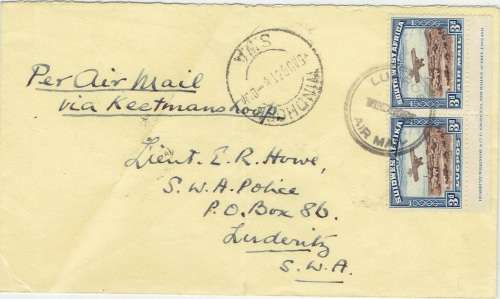 Per Air Mail
via Keetmanshoop
Lieut. E. R. Howe,
S.W.A. Police
P.O. Box 86.
Luderitz
S.W.A.
WINDHOEK
SWA
SOUTH WEST AFRICA
3d
3d
AIR MAIL
SUIDWES-AFRIKA
3d
3d
LUGPOS
AIR MAIL